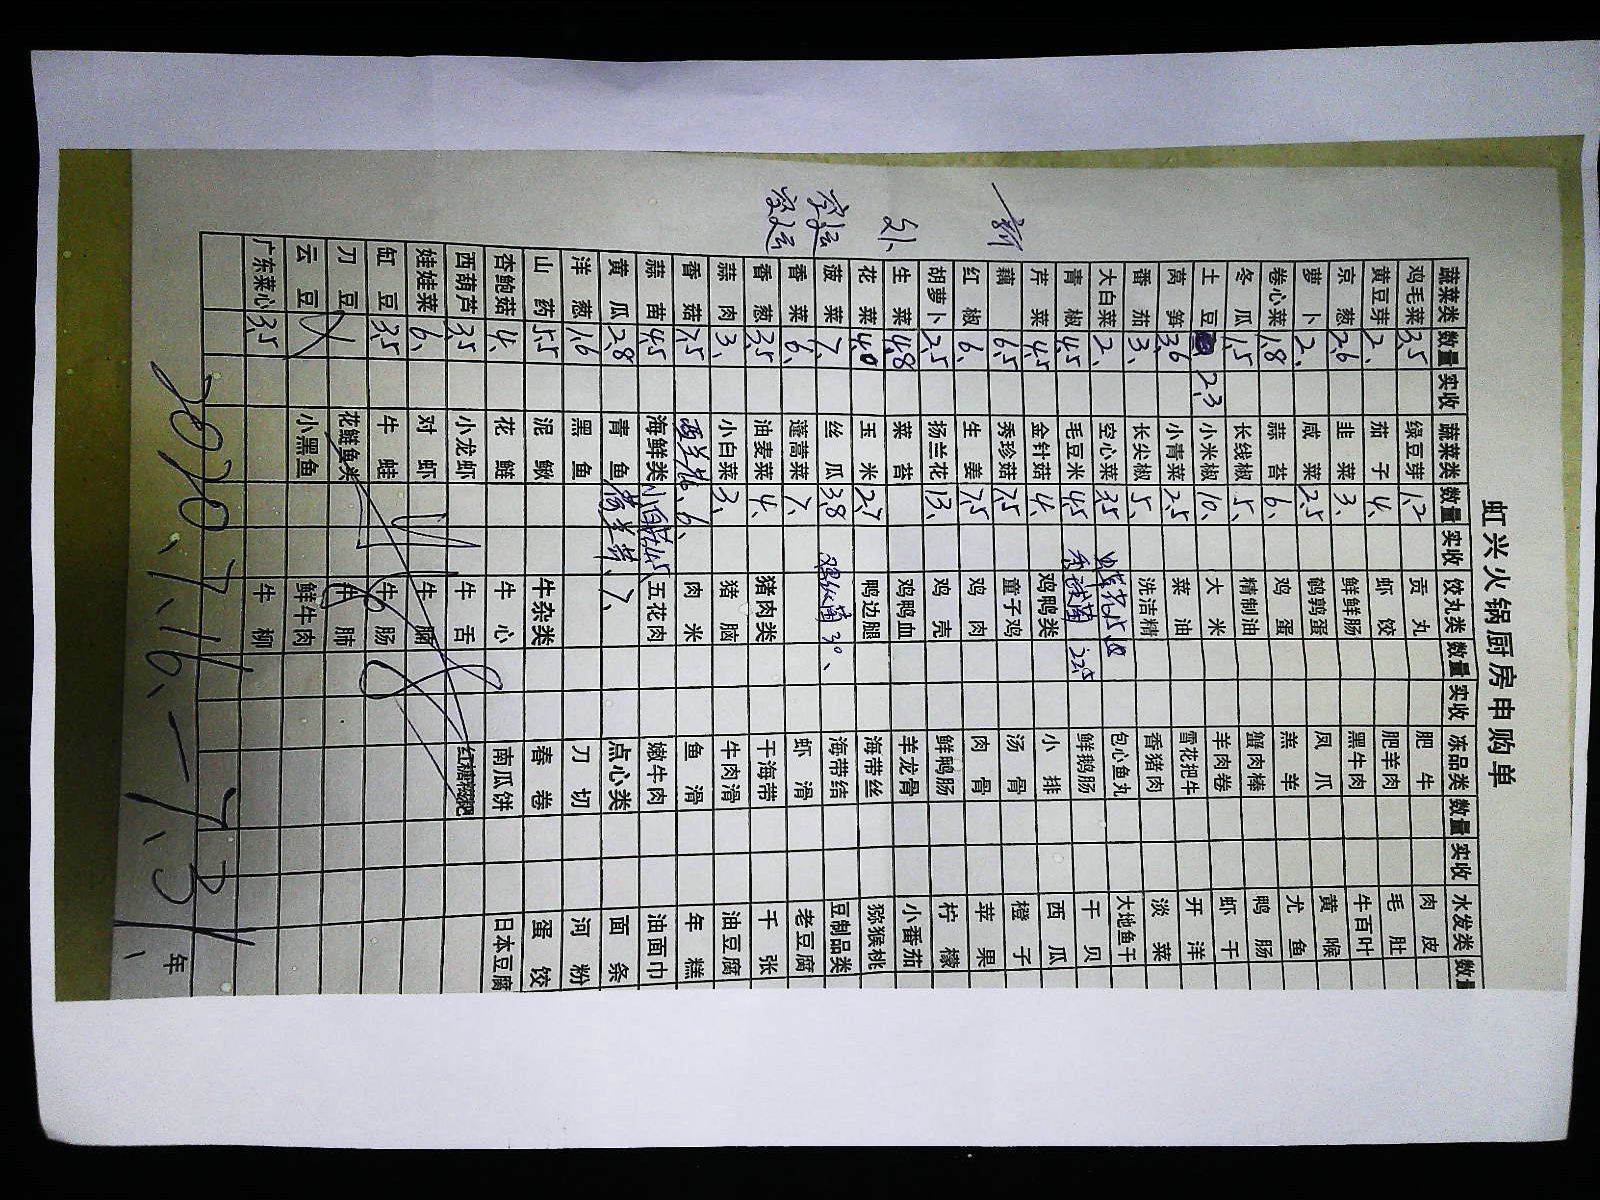 虹兴火锅厨房申购单
蔬菜类 数量 实收 蔬菜类 数量 实收 饺丸类 数量 实收 冻品类 数量 实收 水发类 数量
鸡毛菜 3.5 绿豆芽 1.2 贡丸 肥牛 肉皮
黄豆芽 2. 茄子 4. 虾饺 肥羊肉 毛肚
京葱 2.6 韭菜 3. 鲜鲜肠 黑牛肉 牛百叶
萝卜 2. 咸菜 2.5 鹌鹑蛋 凤爪 黄喉
卷心菜 1.8 蒜苔 6. 鸡蛋 羔羊 尤鱼
冬瓜 1.5 长线椒 5. 精制油 蟹肉棒 鸭肠
土豆 2.3 小米椒 10. 大米 羊肉卷 虾干
莴笋 3.6 小青菜 2.5 菜油 雪花把牛 开洋
番茄 3. 长尖椒 5. 洗洁精 香猪肉 淡菜
大白菜 2. 空心菜 3.5 虫草花 包心鱼丸 大地鱼干
青椒 4.5 毛豆米 4.5 22.5 鲜鹅肠 干贝
芹菜 4.5 金针菇 4. 鸡鸭类 小排 西瓜
藕 6.5 秀珍菇 7.5 童子鸡 汤骨 橙子
红椒 6. 生姜 7.5 鸡肉 肉骨 苹果
胡萝卜 2.5 扬兰花 13. 鸡壳 鲜鸭肠 柠檬
生菜 4.8 菜苔 鸡鸭血 羊龙骨 小番茄
花菜 4.0 玉米 2.7 鸭边腿 海带丝 猕猴桃
菠菜 7. 丝瓜 3.8 鸡枞菌 30. 海带结 豆制品类
香菜 6. 蓬蒿菜 7. 虾滑 老豆腐
香葱 3.5 油麦菜 4. 猪肉类 干海带 千张
蒜肉 3. 小白菜 3. 猪脑 牛肉滑 油豆腐
香菇 7.5 西兰花 6. 肉米 鱼滑 年糕
蒜苗 4.5 海鲜类 小白菇 4.5 五花肉 嫩牛肉 油面巾
黄瓜 2.8 青鱼 7. 点心类 面条
洋葱 1.6 黑鱼 刀切 河粉
山药 5.5 泥鳅 牛杂类 春卷 蛋饺
杏鲍菇 4. 花鲢 牛心 南瓜饼 日本豆腐
西葫芦 3.5 小龙虾 牛舌 红糖糍粑
娃娃菜 6. 对虾 牛腩
缸豆 3.5 牛蛙 牛肠
刀豆 花鲢鱼头 牛肺
云豆 小黑鱼 鲜牛肉
广东菜心 3.5 牛柳
2020.7.16.—7.31. 年